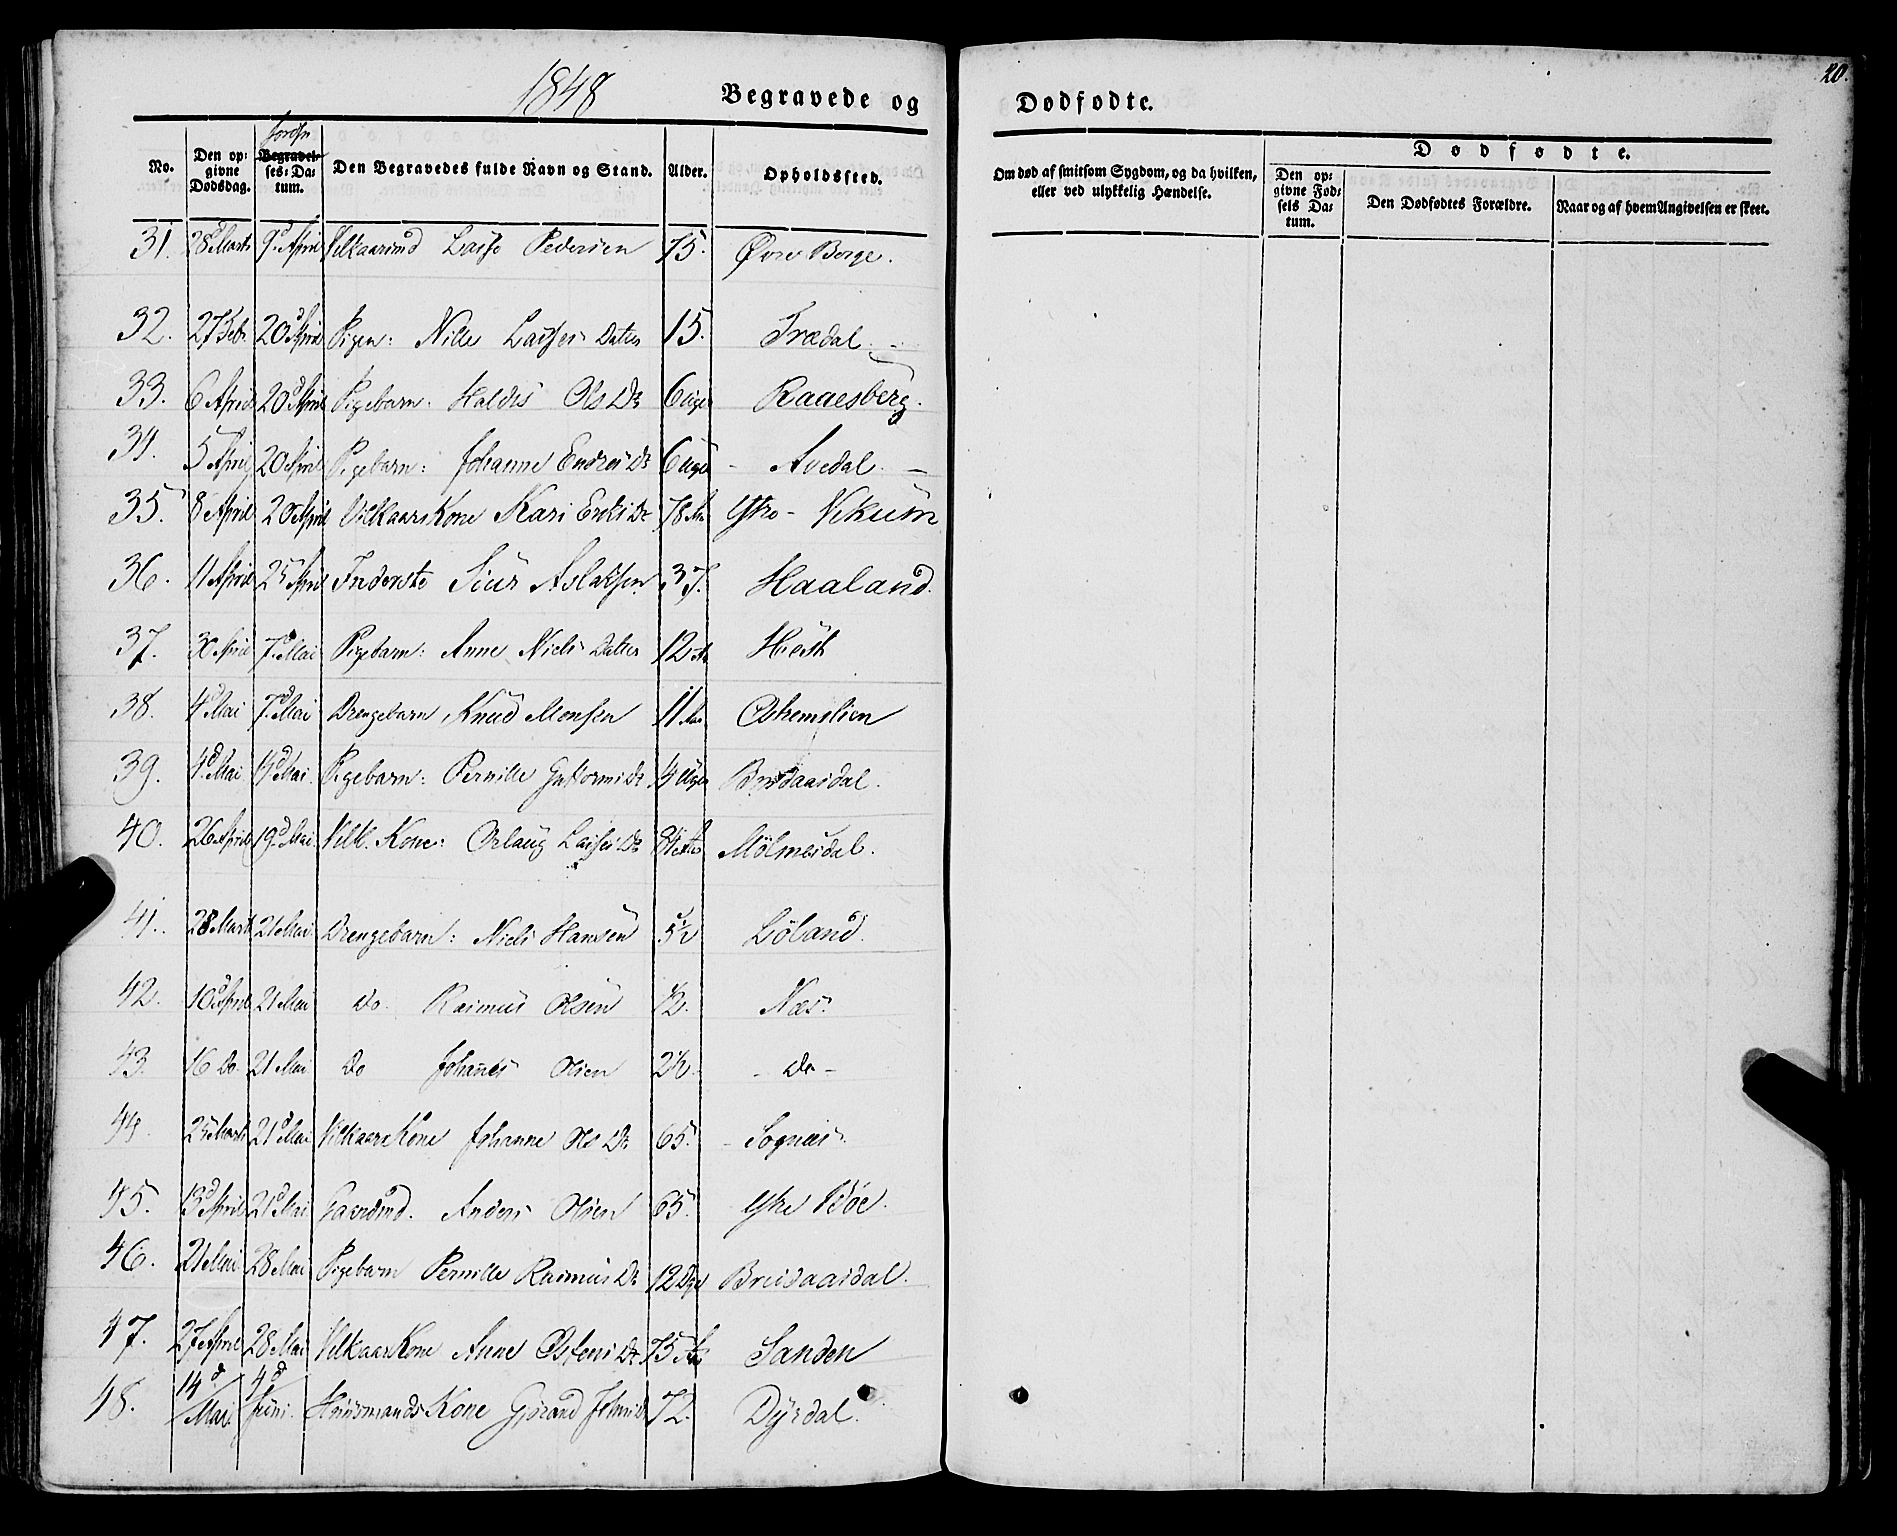 1848
Begravede og
Dødfødte.
20.
No.
Den opgivne Dødsdag.
Begravelses-Datum.
Den Begravedes fulde Navn og Stand.
Alder.
Opholdssted.
Om død af smitsom Sygdom, og da hvilken, eller ved ulykkelig Hændelse.
Dødfødte.
Den opgivne Fødsels Datum.
Den Dødfødtes Forældre.
Naar og af hvem Angivelsen er skeet.
31. 28 Marts 9d April Vilkaarsmd Lasse Pedersen 75. Øvre Borge.
32. 27 Febr. 20d April Pigen: Nille Lasses Datter 15. Trædal.
33. 6 April 20d April Pigebarn: Ols Dr 6 Uger Raaesberg.
34. 5 April 20 April Pigebarn: Johanne Endres Dr 6 Uger - Avedal. -
35. 8 April 20 April Vilkaars Kone Kari Eriks Dr 78 Aar Ytre - Vikum
36. 11 April 25 April Inderste Siur Aslaksen 37. Haaland.
37. 30 April 7. Mai Pigebarn: Anne Niels Datter 12
38. 4d Mai 7d Mai Drengebarn Knud Monsen 11
39. 4d Mai 14d Mai Pigebarn: Pernille Guttorms Dr 4 Uger Breidaasdal.
40. 26 April 19d Mai Vilk. Kone: Orlaug Lasses Dr Mölmesdal.
41. 28 Marts 21 Mai Drengebarn: Niels Hansen 5½ Löland.
42. 10d April 21 Mai Do. Rasmus Olsen ½. Næs.
43. 16 Do. 21 Mai Do Johannes Olsen 2½. - Do -
44. 25 Marts 21d Mai Vilkaars Kone Johanne Ols Dr 65. - Sognæs.
45. 13d April 21d Mai Gaardmd. Anders Olsen 65. Ytre Böe.
46. 21 Mai 28 Mai Pigebarn Pernille Rasmus Dr 12 Dge Breidaasdal.
47. 27 April 28 Mai Vilkaars Kone Anne Ostens Dr 75 Aar Sanden
48. 14d/Mai 4d/Juni. Huusmands Kone Gjörond Johns Dr 72. Dyrdal.